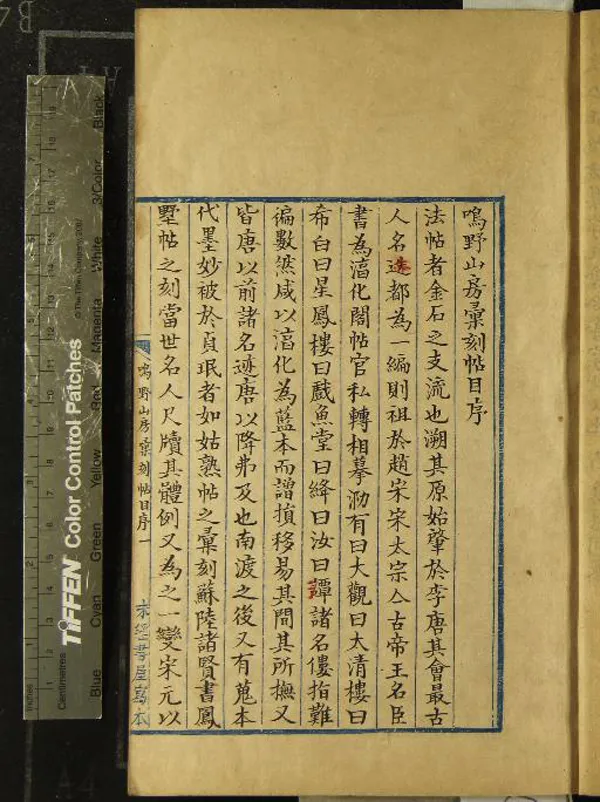 鳴野山房彙刻帖目序
法帖者金石之支流也溯其原始肇於李唐其會最古
人名迹都為一編則祖於趙宋宋太宗仌古帝王名臣
書為湻化閣帖官私轉相摹泐有曰大觀曰太清樓曰
希白曰星鳳樓曰戲魚堂曰絳曰汝曰譚諸名僂指難
徧數然咸以湻化為藍本而譄損移易其間其所撫又
皆唐以前諸名迹唐以降弗及也南渡之後又有蒐本
代墨妙被於貞珉者如姑熟帖之彙刻蘇陸諸賢書鳳
墅帖之刻當世名人尺牘其體例又為之一變宋元以
鳴野山房彙刻帖目序一
書屋寫本
TIFFEN Color Control Patches
© The Tiffen Company, 2007
Inches
Centimetres
Blue
Cyan
Green
Yellow
Red
Magenta
White
3/Color
Black